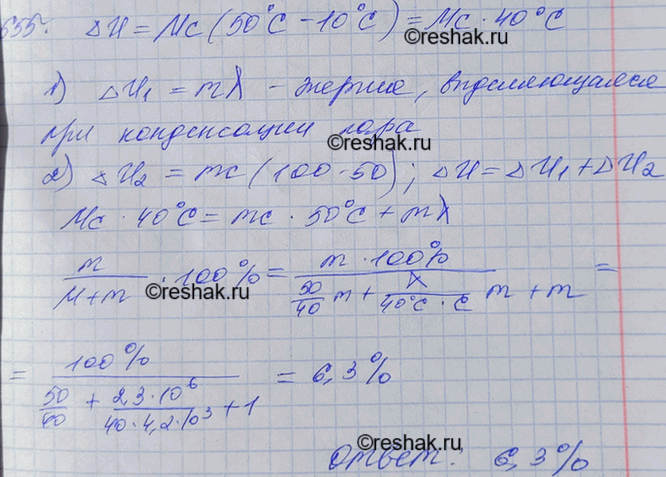 655. ΔU = Mc(50°C - 10°C) = Mc · 40°C
©reshak.ru
1) ΔU₁ = mλ - энергия, выделяющаяся
при конденсации пара
©reshak.ru
2) ΔU₂ = mc(100-50); ΔU = ΔU₁ + ΔU₂
Mc · 40°C = mc · 50°C + mλ
m/(M+m) · 100% = m · 100%/(50/40 m + λ/(40°C · c) m + m) =
©reshak.ru
= 100%/(50/40 + 2,3 · 10⁶/(40 · 4,2 · 10³) + 1) = 6,3%
©reshak.ru
Ответ: 6,3%